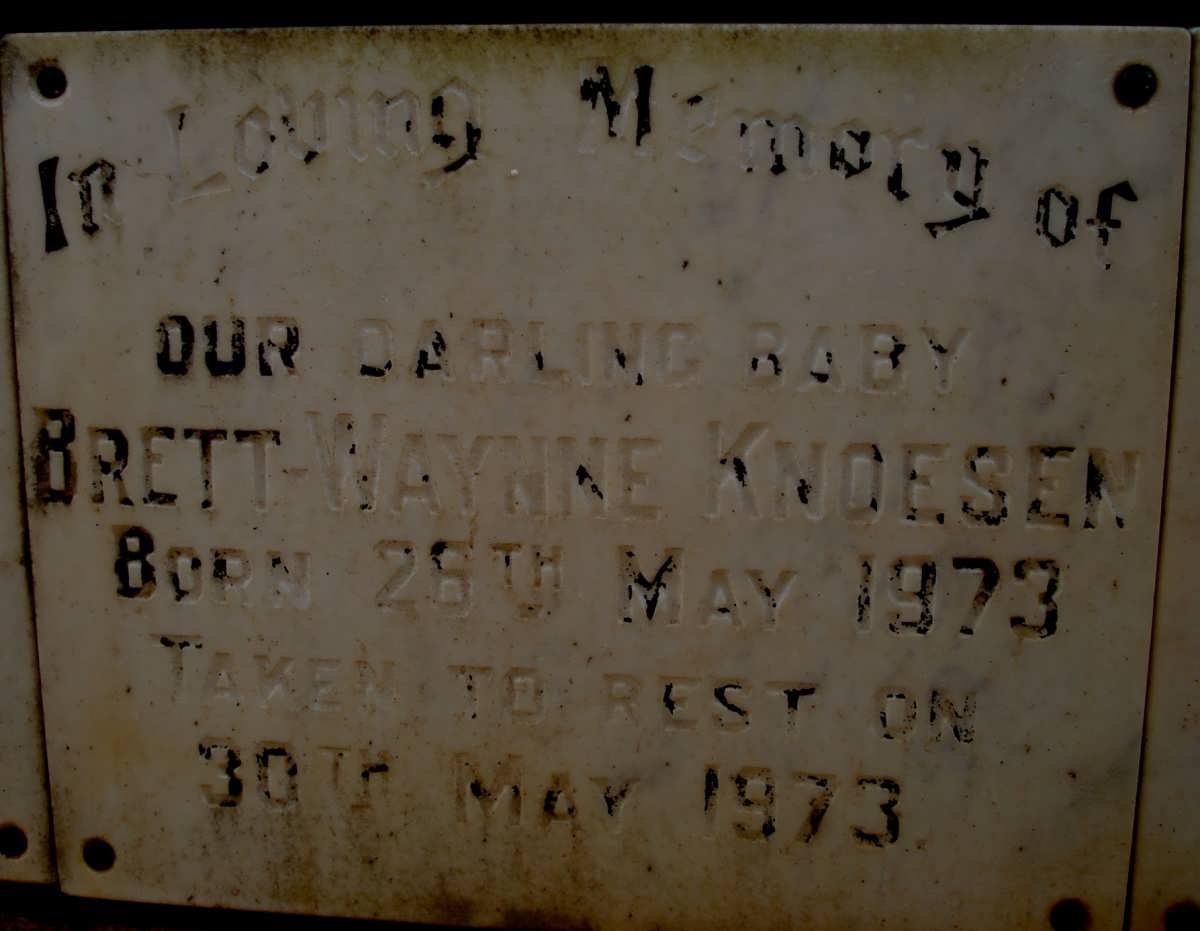 In Loving Memory of
OUR DARLING BABY
BRETT-WAYNNE KNOESEN
BORN 26TH MAY 1973
TAKEN TO REST ON
30TH MAY 1973.